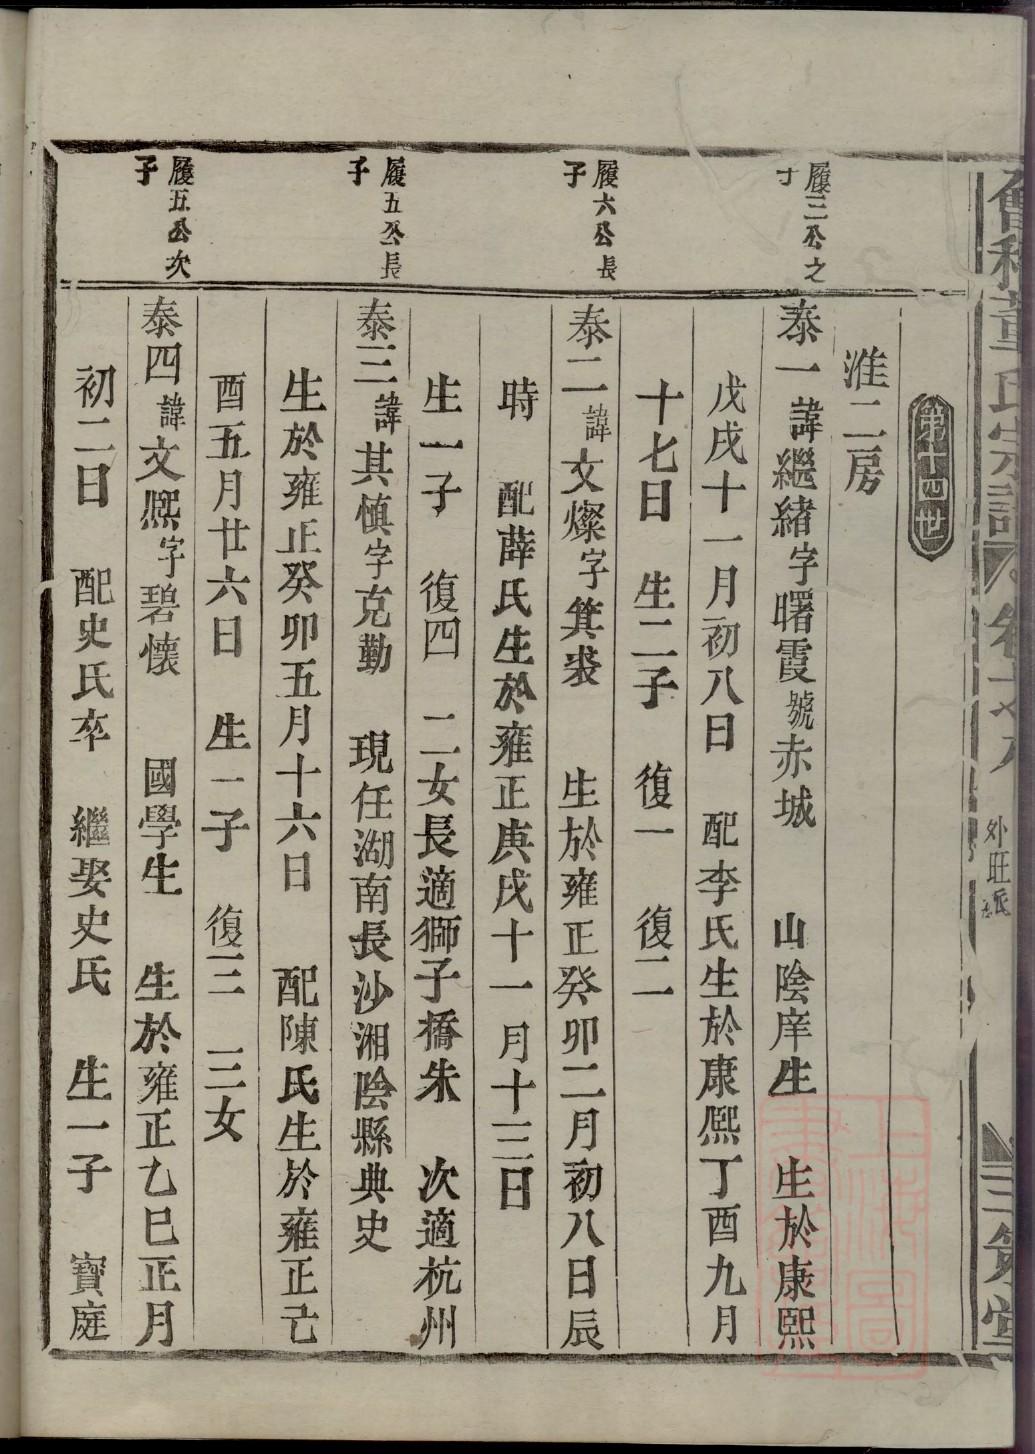 會稽董氏宗譜
外旺派
三策堂
第十四世
淮二房
履三公之
子
泰一諱繼緒字曙霞號赤城 山陰庠生 生於康熙
戊戌十一月初八日 配李氏生於康熙丁酉九月
十七日 生二子 復一 復二
履六公長
子
泰二諱文燦字箕裘 生於雍正癸卯二月初八日辰
時 配薛氏生於雍正庚戌十一月十三日
生一子 復四 二女長適獅子橋朱 次適杭州
履五公長
子
泰三諱其慎字克勤 現任湖南長沙湘陰縣典史
生於雍正癸卯五月十六日 配陳氏生於雍正己
酉五月廿六日 生一子 復三 三女
履五公次
子
泰四諱文熈字碧懷 國學生 生於雍正乙巳正月
初二日 配史氏卒 繼娶史氏 生一子 寶庭